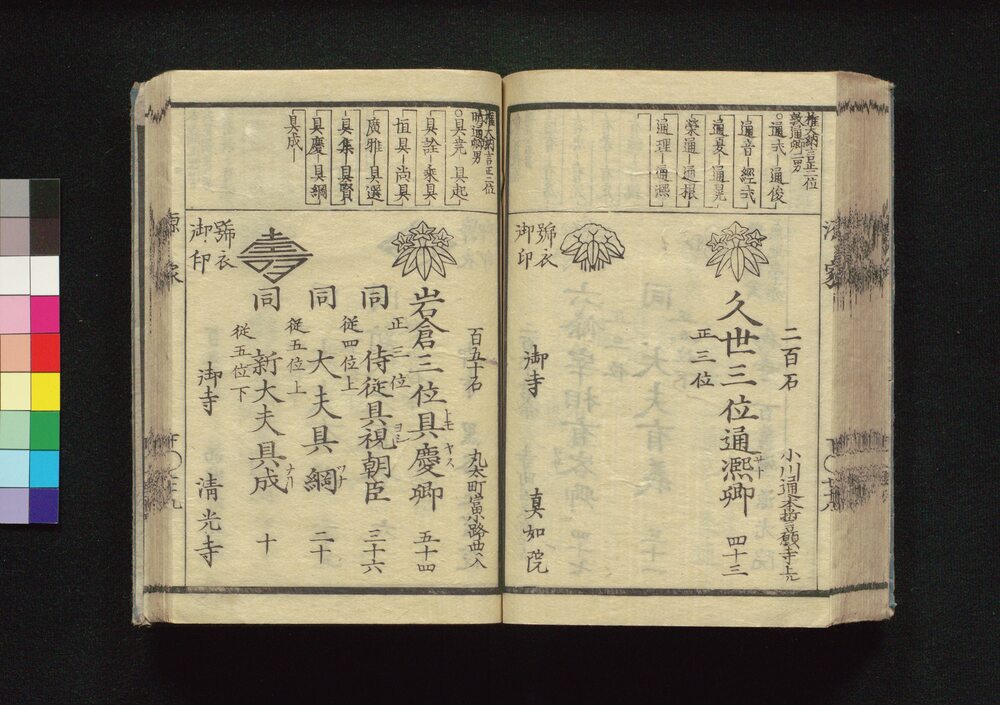 権大納言正二位
敦通卿二男
○通式―通俊
通音―經式
通夏―通晃
榮通―通根
通理―通凞
二百石
小川通本誓願寺上ル
久世三位通凞卿 四十三
サト
正三位
號衣
御印
御寺 真如院
権大納言正二位
晴通卿男
○具堯 具起
具詮―乘具
恒具―尚具
廣雅―具選
具集―具賢
具慶―具綱
具成―
百五十石
丸太町富小路西入
岩倉三位具慶卿 五十四
トモ ヤス
正三位
同 侍従具視朝臣 三十六
ヨミ
従四位上
同 大夫具綱 二十
ツナ
従五位上
同 新大夫具成 十
ナリ
従五位下
號衣
御印
御寺 清光寺